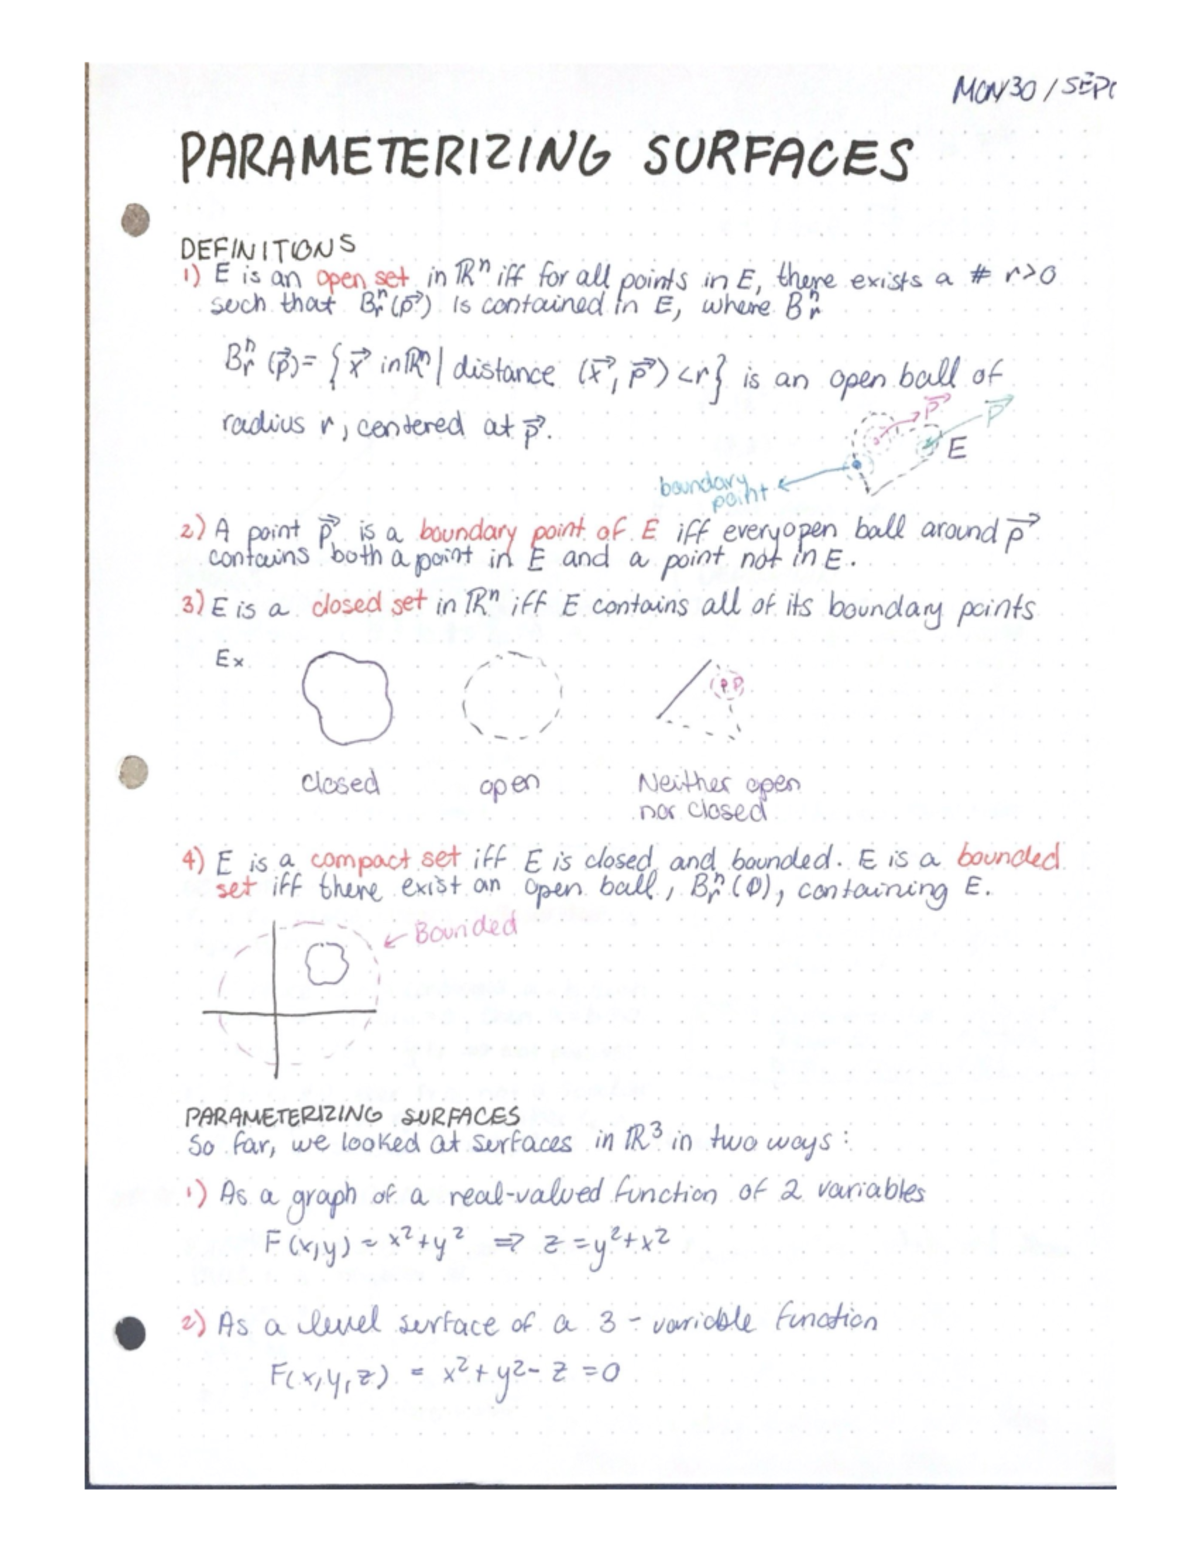 MON 30 / SEPT
PARAMETERIZING SURFACES
DEFINITIONS
1) E is an open set in ℝⁿ iff for all points in E, there exists a # r>0
such that Bᵣⁿ(p⃗) is contained in E, where Bᵣⁿ
Bᵣⁿ(p⃗) = {x⃗ in ℝⁿ | distance (x⃗, p⃗) < r} is an open ball of
radius r, centered at p⃗.
p⃗ p⃗
E
boundary
point
2) A point p⃗ is a boundary point of E iff every open ball around p⃗
contains both a point in E and a point not in E.
3) E is a closed set in ℝⁿ iff E contains all of its boundary points
Ex
closed open Neither open
nor closed
4) E is a compact set iff E is closed and bounded. E is a bounded
set iff there exist an open ball, Bᵣⁿ(0), containing E.
← Bounded
PARAMETERIZING SURFACES
So far, we looked at surfaces in ℝ³ in two ways:
1) As a graph of a real-valued function of 2 variables
F(x,y) = x²+y² ⇒ z = y²+x²
2) As a level surface of a 3-variable function
F(x,y,z) = x²+y²-z = 0